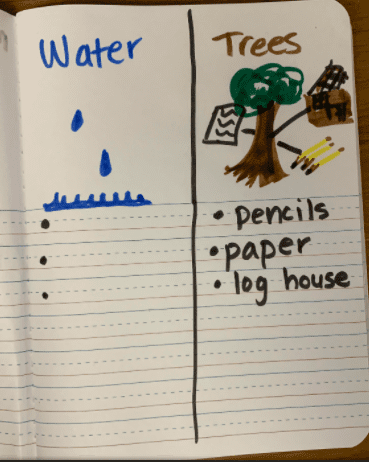 Water
Trees
• pencils
• paper
• log house